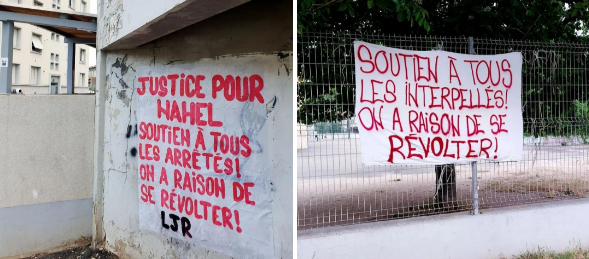 JUSTICE POUR
NAHEL
SOUTIEN À TOUS
LES ARRÊTÉS!
ON A RAISON DE
SE RÉVOLTER!
LJR
SOUTIEN À TOUS
LES INTERPELLÉS!
ON A RAISON DE SE
RÉVOLTER!